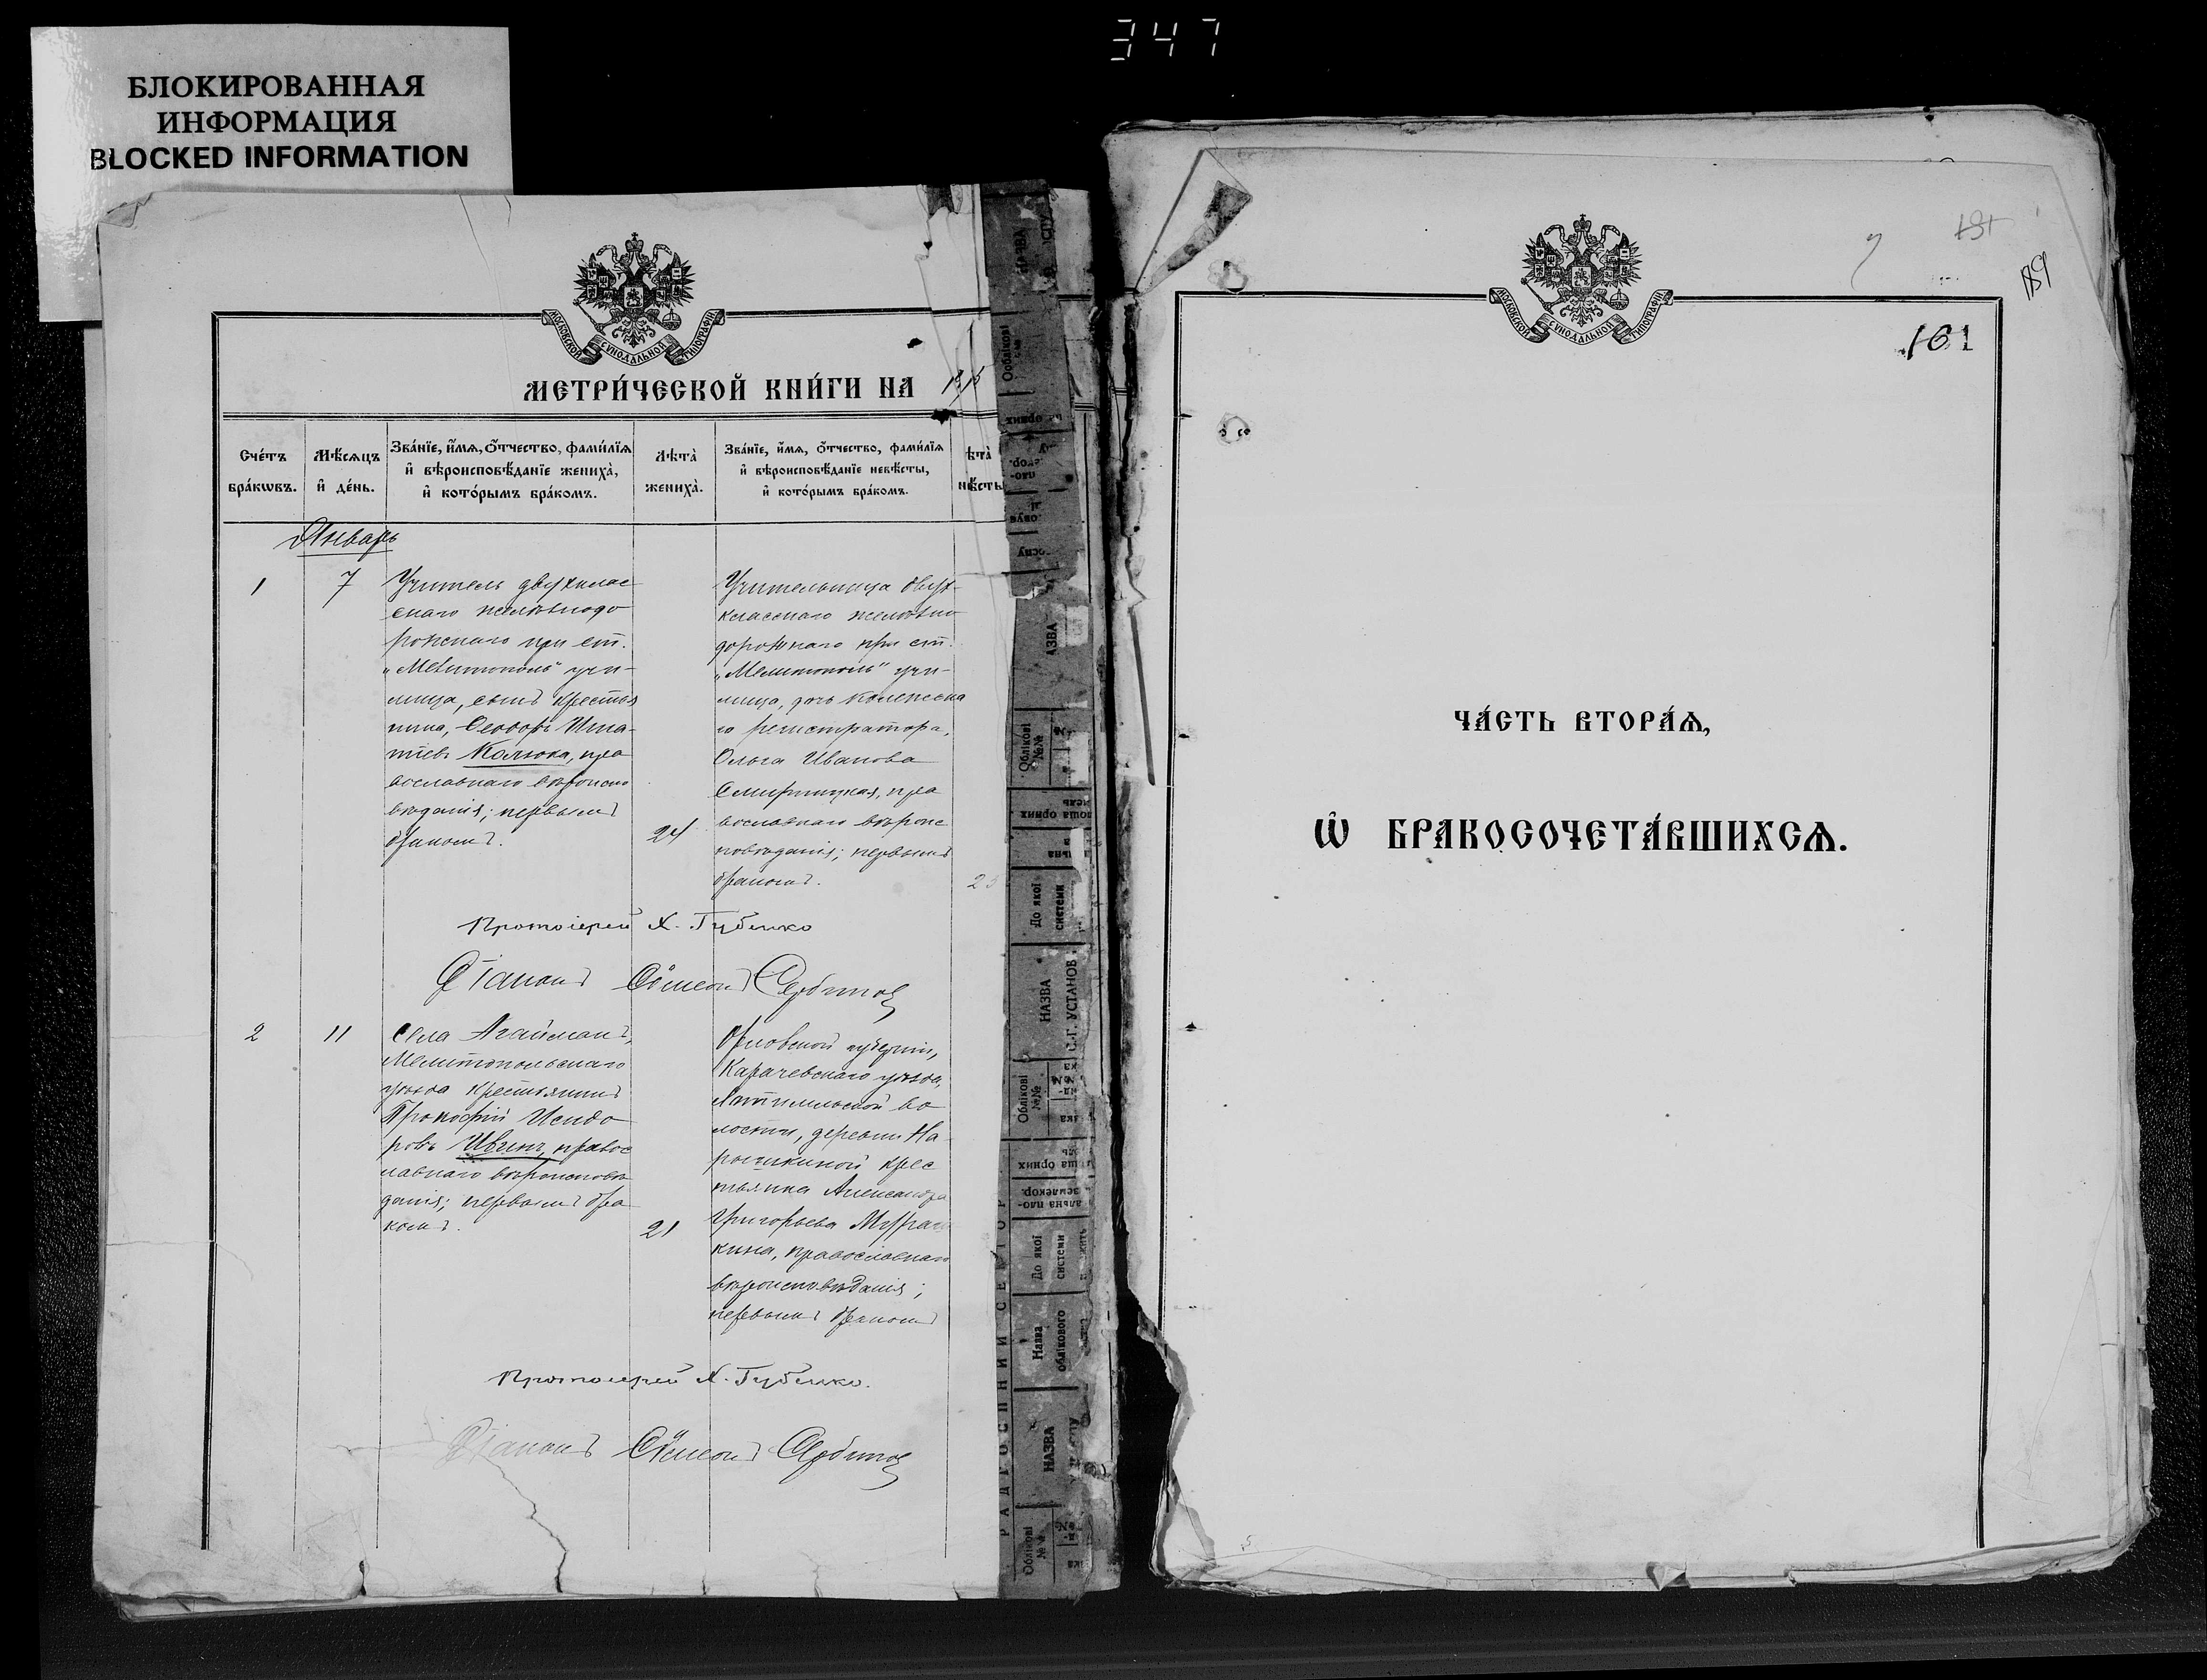 347
БЛОКИРОВАННАЯ
ИНФОРМАЦИЯ
BLOCKED INFORMATION
МОСКОВСКОЙ СѴНОДАЛЬНОЙ ТИПОГРАФІИ
МЕТРИ́ЧЕСКОЙ КНИ́ГИ НА 1915
Сче́тъ бра́кѡвъ.
Мѣ́сѧцъ и҆ де́нь.
Зва́нїе, и҆́мѧ, ѻ҆́тчество, фами́лїѧ
и҆ вѣроисповѣ́данїе жениха̀,
и҆ кото́рымъ бра́комъ.
Лѣта̀ жениха̀.
Зва́нїе, и҆́мѧ, ѻ҆́тчество, фами́лїѧ
и҆ вѣроисповѣ́данїе невѣ́сты,
и҆ кото́рымъ бра́комъ.
Январь
1
7
Учитель двухклас
снаго желѣзнодо
рожнаго при ст.
„Мелитополь" учи-
лища, сынъ крестья
нина, Ѳеодоръ Игна-
тіевъ Калюка, пра
вославнаго вѣроиспо
вѣданія; первымъ
бракомъ.
24
Учительница двух-
класснаго желѣзно
дорожнаго при ст.
„Мелитополь" учи-
лища, дочь коллежска
го регистратора,
Ольга Иванова
православнаго вѣроис
повѣданія; первымъ
бракомъ.
23
Протоіерей Х. Губенко
Діаконъ Сѵмеонъ Сербинов
2
11
Села Агайманъ,
Мелитопольскаго
уѣзда крестьянинъ
Прокофій Исидо
ровъ Ивинъ, правос
лавнаго вѣроисповѣ
данія; первымъ бра
комъ.
21
Орловской губерніи,
Карачевскаго уѣзда,
волости, деревни На
рышкиной крес
тьянка Александра
Григорьева
православнаго
вѣроисповѣданія;
первымъ бракомъ
Протоіерей Х. Губенко.
Діаконъ Сѵмеонъ Сербинов
Облікові №№
НАЗВА
До якої системи
С.Г. УСТАНОВ
Назва облікового
МОСКОВСКОЙ СѴНОДАЛЬНОЙ ТИПОГРАФІИ
161
ЧА́СТЬ ВТОРА́Ѧ,
Ѡ҆ БРАКОСОЧЕТА́ВШИХСѦ.